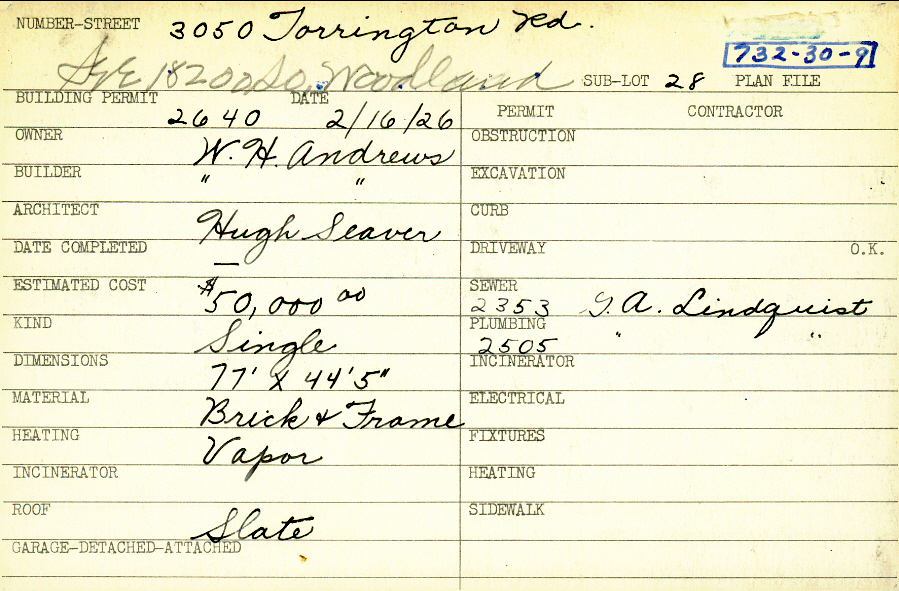 NUMBER-STREET 3050 Torrington Rd.
732-30-9
18200 So. Woodland SUB-LOT 28 PLAN FILE
BUILDING PERMIT DATE
2640 2/16/26
PERMIT CONTRACTOR
OWNER W. H. Andrews
OBSTRUCTION
BUILDER " "
EXCAVATION
ARCHITECT Hugh Seaver
CURB
DATE COMPLETED —
DRIVEWAY O.K.
ESTIMATED COST $50,000 00
SEWER 2353 G. A. Lindquist
KIND Single
PLUMBING 2505 " "
DIMENSIONS 77' X 44'5"
INCINERATOR
MATERIAL Brick & Frame
ELECTRICAL
HEATING Vapor
FIXTURES
INCINERATOR
HEATING
ROOF Slate
SIDEWALK
GARAGE-DETACHED-ATTACHED